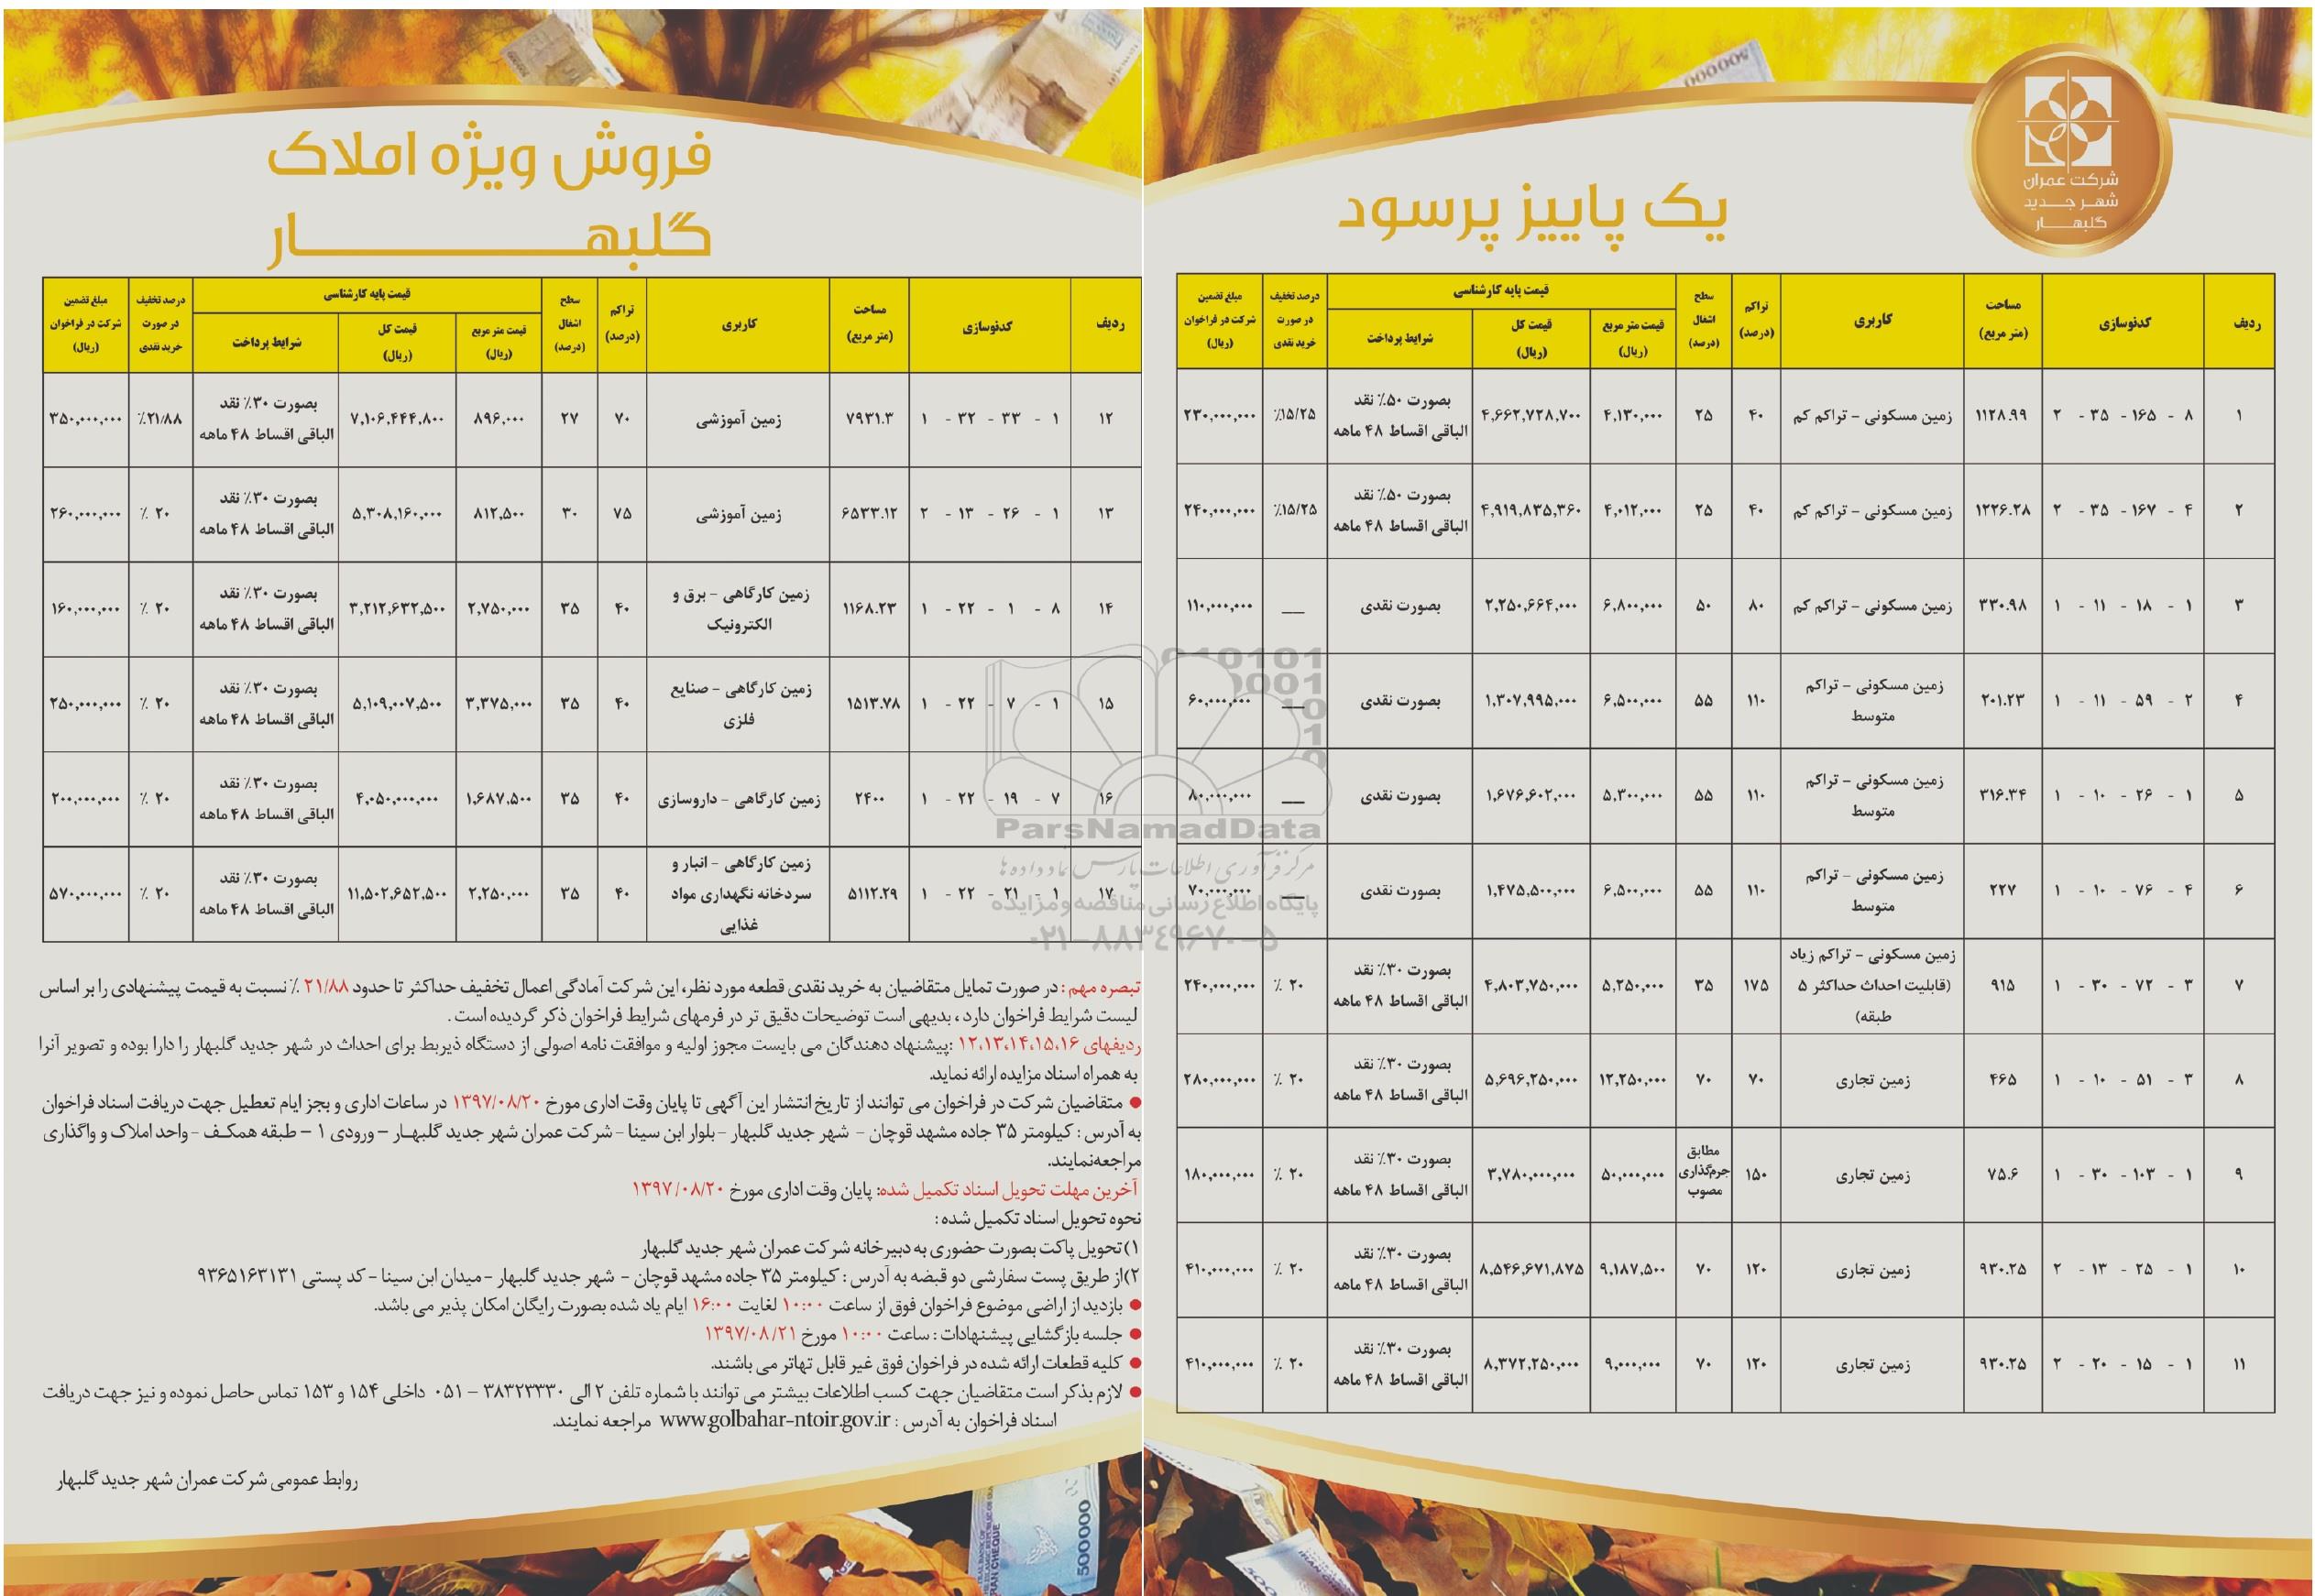 شرکت عمران
شهر جدید
گلبهار
یک پاییز پرسود
ردیف | کدنوسازی | مساحت (متر مربع) | کاربری | تراکم (درصد) | سطح اشغال (درصد) | قیمت پایه کارشناسی | درصد تخفیف در صورت خرید نقدی | مبلغ تضمین شرکت در فراخوان (ریال)
قیمت متر مربع (ریال) | قیمت کل (ریال) | شرایط پرداخت
۱ | ۲ - ۳۵ - ۱۶۵ - ۸ | ۱۱۲۸.۹۹ | زمین مسکونی – تراکم کم | ۴۰ | ۲۵ | ۴,۱۳۰,۰۰۰ | ۴,۶۶۲,۷۲۸,۷۰۰ | بصورت ۵۰٪ نقد الباقی اقساط ۴۸ ماهه | ٪۱۵/۲۵ | ۲۳۰,۰۰۰,۰۰۰
۲ | ۲ - ۳۵ - ۱۶۷ - ۴ | ۱۲۲۶.۲۸ | زمین مسکونی – تراکم کم | ۴۰ | ۲۵ | ۴,۰۱۲,۰۰۰ | ۴,۹۱۹,۸۳۵,۳۶۰ | بصورت ۵۰٪ نقد الباقی اقساط ۴۸ ماهه | ٪۱۵/۲۵ | ۲۴۰,۰۰۰,۰۰۰
۳ | ۱ - ۱۱ - ۱۸ - ۱ | ۳۳۰.۹۸ | زمین مسکونی – تراکم کم | ۸۰ | ۵۰ | ۶,۸۰۰,۰۰۰ | ۲,۲۵۰,۶۶۴,۰۰۰ | بصورت نقدی | __ | ۱۱۰,۰۰۰,۰۰۰
۴ | ۱ - ۱۱ - ۵۹ - ۲ | ۲۰۱.۲۳ | زمین مسکونی – تراکم متوسط | ۱۱۰ | ۵۵ | ۶,۵۰۰,۰۰۰ | ۱,۳۰۷,۹۹۵,۰۰۰ | بصورت نقدی | __ | ۶۰,۰۰۰,۰۰۰
۵ | ۱ - ۱۰ - ۲۶ - ۱ | ۳۱۶.۳۴ | زمین مسکونی – تراکم متوسط | ۱۱۰ | ۵۵ | ۵,۳۰۰,۰۰۰ | ۱,۶۷۶,۶۰۲,۰۰۰ | بصورت نقدی | __ | ۸۰,۰۰۰,۰۰۰
۶ | ۱ - ۱۰ - ۷۶ - ۴ | ۲۲۷ | زمین مسکونی – تراکم متوسط | ۱۱۰ | ۵۵ | ۶,۵۰۰,۰۰۰ | ۱,۴۷۵,۵۰۰,۰۰۰ | بصورت نقدی | __ | ۷۰,۰۰۰,۰۰۰
۷ | ۱ - ۳۰ - ۷۲ - ۳ | ۹۱۵ | زمین مسکونی – تراکم زیاد (قابلیت احداث حداکثر ۵ طبقه) | ۱۷۵ | ۳۵ | ۵,۲۵۰,۰۰۰ | ۴,۸۰۳,۷۵۰,۰۰۰ | بصورت ۳۰٪ نقد الباقی اقساط ۴۸ ماهه | ٪ ۲۰ | ۲۴۰,۰۰۰,۰۰۰
۸ | ۱ - ۱۰ - ۵۱ - ۳ | ۴۶۵ | زمین تجاری | ۷۰ | ۷۰ | ۱۲,۲۵۰,۰۰۰ | ۵,۶۹۶,۲۵۰,۰۰۰ | بصورت ۳۰٪ نقد الباقی اقساط ۴۸ ماهه | ٪ ۲۰ | ۲۸۰,۰۰۰,۰۰۰
۹ | ۱ - ۳۰ - ۱۰۳ - ۱ | ۷۵.۶ | زمین تجاری | ۱۵۰ | مطابق جرم‌گذاری مصوب | ۵۰,۰۰۰,۰۰۰ | ۳,۷۸۰,۰۰۰,۰۰۰ | بصورت ۳۰٪ نقد الباقی اقساط ۴۸ ماهه | ٪ ۲۰ | ۱۸۰,۰۰۰,۰۰۰
۱۰ | ۲ - ۱۳ - ۲۵ - ۱ | ۹۳۰.۲۵ | زمین تجاری | ۱۲۰ | ۷۰ | ۹,۱۸۷,۵۰۰ | ۸,۵۴۶,۶۷۱,۸۷۵ | بصورت ۳۰٪ نقد الباقی اقساط ۴۸ ماهه | ٪ ۲۰ | ۴۱۰,۰۰۰,۰۰۰
۱۱ | ۲ - ۲۰ - ۱۵ - ۱ | ۹۳۰.۲۵ | زمین تجاری | ۱۲۰ | ۷۰ | ۹,۰۰۰,۰۰۰ | ۸,۳۷۲,۲۵۰,۰۰۰ | بصورت ۳۰٪ نقد الباقی اقساط ۴۸ ماهه | ٪ ۲۰ | ۴۱۰,۰۰۰,۰۰۰
فروش ویژه املاک
گلبهار
ردیف | کدنوسازی | مساحت (متر مربع) | کاربری | تراکم (درصد) | سطح اشغال (درصد) | قیمت پایه کارشناسی | درصد تخفیف در صورت خرید نقدی | مبلغ تضمین شرکت در فراخوان (ریال)
قیمت متر مربع (ریال) | قیمت کل (ریال) | شرایط پرداخت
۱۲ | ۱ - ۳۲ - ۳۳ - ۱ | ۷۹۳۱.۳ | زمین آموزشی | ۷۰ | ۲۷ | ۸۹۶,۰۰۰ | ۷,۱۰۶,۴۴۴,۸۰۰ | بصورت ۳۰٪ نقد الباقی اقساط ۴۸ ماهه | ٪۲۱/۸۸ | ۳۵۰,۰۰۰,۰۰۰
۱۳ | ۲ - ۱۳ - ۲۶ - ۱ | ۶۵۳۳.۱۲ | زمین آموزشی | ۷۵ | ۳۰ | ۸۱۲,۵۰۰ | ۵,۳۰۸,۱۶۰,۰۰۰ | بصورت ۳۰٪ نقد الباقی اقساط ۴۸ ماهه | ٪ ۲۰ | ۲۶۰,۰۰۰,۰۰۰
۱۴ | ۱ - ۲۲ - ۱ - ۸ | ۱۱۶۸.۲۳ | زمین کارگاهی – برق و الکترونیک | ۴۰ | ۳۵ | ۲,۷۵۰,۰۰۰ | ۳,۲۱۲,۶۳۲,۵۰۰ | بصورت ۳۰٪ نقد الباقی اقساط ۴۸ ماهه | ٪ ۲۰ | ۱۶۰,۰۰۰,۰۰۰
۱۵ | ۱ - ۲۲ - ۷ - ۱ | ۱۵۱۳.۷۸ | زمین کارگاهی – صنایع فلزی | ۴۰ | ۳۵ | ۳,۳۷۵,۰۰۰ | ۵,۱۰۹,۰۰۷,۵۰۰ | بصورت ۳۰٪ نقد الباقی اقساط ۴۸ ماهه | ٪ ۲۰ | ۲۵۰,۰۰۰,۰۰۰
۱۶ | ۱ - ۲۲ - ۱۹ - ۷ | ۲۴۰۰ | زمین کارگاهی – داروسازی | ۴۰ | ۳۵ | ۱,۶۸۷,۵۰۰ | ۴,۰۵۰,۰۰۰,۰۰۰ | بصورت ۳۰٪ نقد الباقی اقساط ۴۸ ماهه | ٪ ۲۰ | ۲۰۰,۰۰۰,۰۰۰
۱۷ | ۱ - ۲۲ - ۲۱ - ۱ | ۵۱۱۲.۲۹ | زمین کارگاهی – انبار و سردخانه نگهداری مواد غذایی | ۴۰ | ۳۵ | ۲,۲۵۰,۰۰۰ | ۱۱,۵۰۲,۶۵۲,۵۰۰ | بصورت ۳۰٪ نقد الباقی اقساط ۴۸ ماهه | ٪ ۲۰ | ۵۷۰,۰۰۰,۰۰۰
تبصره مهم : در صورت تمایل متقاضیان به خرید نقدی قطعه مورد نظر، این شرکت آمادگی اعمال تخفیف حداکثر تا حدود ۲۱/۸۸ ٪ نسبت به قیمت پیشنهادی را بر اساس
لیست شرایط فراخوان دارد ، بدیهی است توضیحات دقیق تر در فرمهای شرایط فراخوان ذکر گردیده است .
ردیفهای ۱۲،۱۳،۱۴،۱۵،۱۶ :پیشنهاد دهندگان می بایست مجوز اولیه و موافقت نامه اصولی از دستگاه ذیربط برای احداث در شهر جدید گلبهار را دارا بوده و تصویر آنرا
به همراه اسناد مزایده ارائه نماید.
● متقاضیان شرکت در فراخوان می توانند از تاریخ انتشار این آگهی تا پایان وقت اداری مورخ ۱۳۹۷/۰۸/۲۰ در ساعات اداری و بجز ایام تعطیل جهت دریافت اسناد فراخوان
به آدرس : کیلومتر ۳۵ جاده مشهد قوچان – شهر جدید گلبهار – بلوار ابن سینا – شرکت عمران شهر جدید گلبهار – ورودی ۱ – طبقه همکف – واحد املاک و واگذاری
مراجعه‌نمایند.
آخرین مهلت تحویل اسناد تکمیل شده: پایان وقت اداری مورخ ۱۳۹۷/۰۸/۲۰
نحوه تحویل اسناد تکمیل شده :
۱)تحویل پاکت بصورت حضوری به دبیرخانه شرکت عمران شهر جدید گلبهار
۲)از طریق پست سفارشی دو قبضه به آدرس : کیلومتر ۳۵ جاده مشهد قوچان – شهر جدید گلبهار – میدان ابن سینا – کد پستی ۹۳۶۵۱۶۳۱۳۱
● بازدید از اراضی موضوع فراخوان فوق از ساعت ۱۰:۰۰ لغایت ۱۶:۰۰ ایام یاد شده بصورت رایگان امکان پذیر می باشد.
● جلسه بازگشایی پیشنهادات : ساعت ۱۰:۰۰ مورخ ۱۳۹۷/۰۸/۲۱
● کلیه قطعات ارائه شده در فراخوان فوق غیر قابل تهاتر می باشند.
● لازم بذکر است متقاضیان جهت کسب اطلاعات بیشتر می توانند با شماره تلفن ۲ الی ۳۸۳۲۳۳۳۰ – ۰۵۱ داخلی ۱۵۴ و ۱۵۳ تماس حاصل نموده و نیز جهت دریافت
اسناد فراخوان به آدرس : www.golbahar-ntoir.gov.ir مراجعه نمایند.
روابط عمومی شرکت عمران شهر جدید گلبهار
ParsNamadData
مرکز فرآوری اطلاعات پارس نماد داده ها
پایگاه اطلاع رسانی مناقصه و مزایده
۰۲۱-۸۸۳۴۹۶۷۰-۵
500000